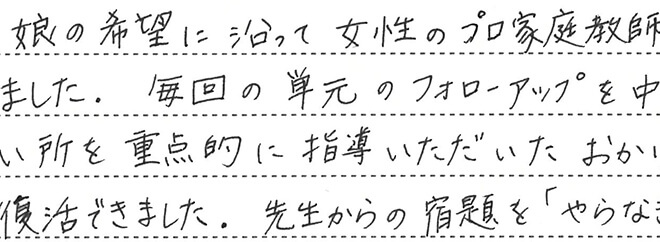 娘の希望に沿って女性のプロ家庭教師
ました. 毎回の単元のフォローアップを中
い所を重点的に指導いただいたおかい
復活できました. 先生からの宿題を「やらなき